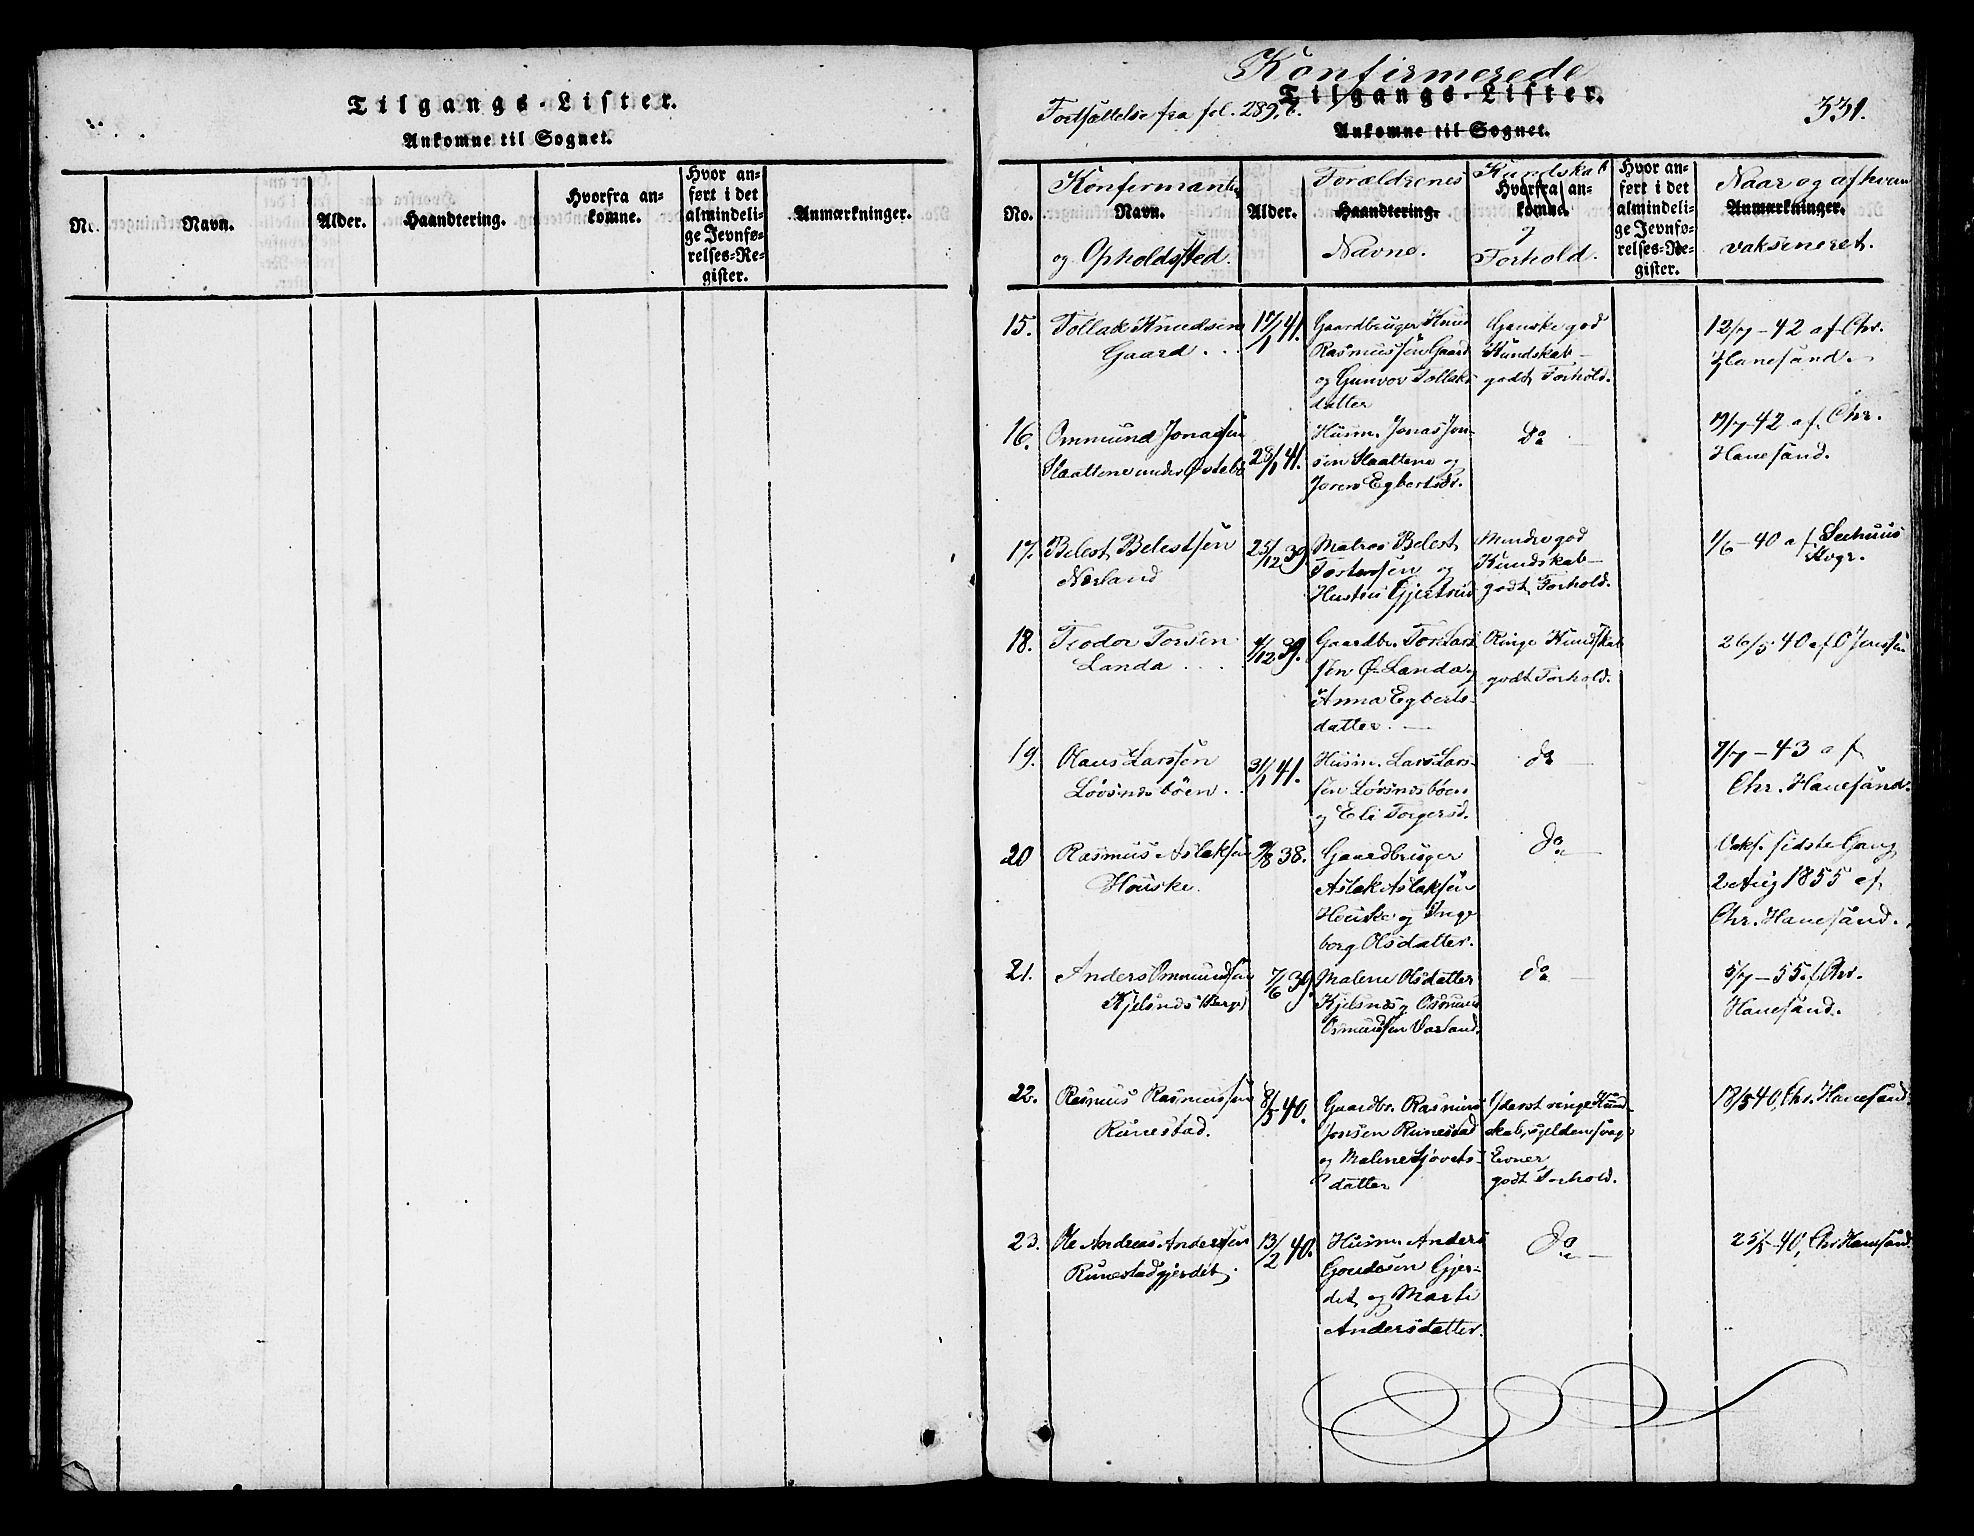 Tilgangs-Lister.
Ankomne til Sognet.
No.
Navn.
Alder.
Haandtering.
Hvorfra an-
komne.
Hvor an-
ført i det
almindeli-
ge Jevnfø-
relses-Re-
gister.
Anmærkninger.
Konfirmerede
Tilgangs-Lister.
Fortsættelse fra fol. 289, b.
Ankomne til Sognet.
331.
No.
Konfirmantens
Navn.
og Opholdssted.
Alder.
Forældrenes
Haandtering.
Navne.
Kundskab
Hvorfra an-
komne.
og
Forhold.
Hvor an-
ført i det
almindeli-
ge Jevnfø-
relses-Re-
gister.
Naar og af hvem
Anmærkninger.
vaksineret.
15. Tollak Knudsen
Gaard.
17/1 41.
Gaardbruger Knud
Rasmussen Gaard
og Gunvor Tollaks
datter
Ganske god
Kundskab
godt Forhold.
12/7 - 42 af Chr.
Hanesand.
16. Ommund Jonassen
Slaattene under Østebø
28/1 41.
Husm. Jonas Jon-
sen Slaattene og
Joren Egbertsdr.
do
17/7 42 af Chr.
Hanesand.
17. Belest Belestsen
Nærland
25/12 39.
Matros Belest
Tostensen og
Hustru Gjertrud
Mindre god
Kundskab
godt Forhold.
1/6 - 40 af Seehuus
Kvgr.
18. Teodor Torsen
Landa
4/12 39.
Gaardbr. Tor Lars
sen Ø. Landa og
Anna Egberts-
datter.
Ringe Kundskab
godt Forhold.
26/5 40 af O Jenssen
19. Olaus Larssen
Løvsnesbøen.
31/1 41.
Husm. Lars Lars-
sen Løvsnesbøen
og Eli Torgersd.
do
7/7 - 43 af
Chr. Hanesand.
20 Rasmus Aslaksen
Houske.
9/8 38.
Gaardbruger
Aslak Aslaksen
Houske og Inge
borg Olsdatter.
do
Vaks. sidste Gang
2 Aug 1855 af
Chr. Hanesand.
21. Anders Ommundsen
Kjelsnes (Berge)
7/6 39.
Malene Olsdatter
Kjelsnes og Osmund
Osmundsen Varland.
do
5/7 - 55 af Chr.
Hanesand.
22. Rasmus Rasmussen
Runestad.
8/3 40.
Gaardbr. Rasmus
Jonsen Runestad
og Malene Sjovats-
datter
Yderst ringe Kund-
skab, sjelden svage
Evner
godt Forhold.
18/5 40, Chr. Hanesand
23. Ole Andreas Anderssen
Runestadgjerdet.
13/2 40.
Husm. Anders
Goudesen Gjer-
det og Marte
Andersdatter.
do
25/5 - 40, Chr Hanesand.